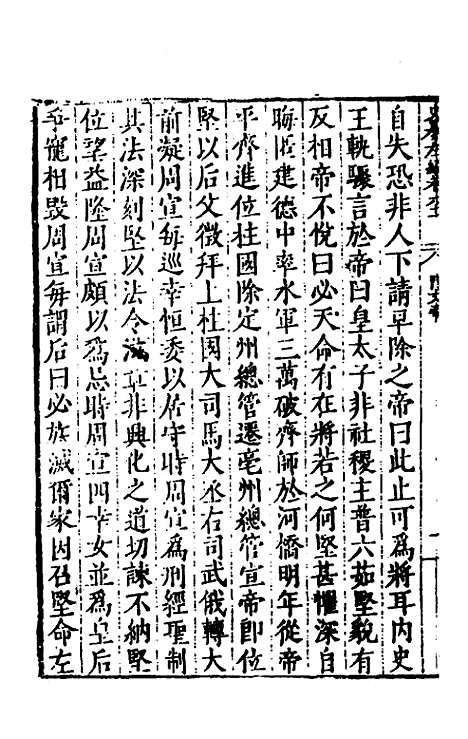 自失恐非人下請早除之帝曰此止可爲將耳内史
王軌驟言於帝曰皇太子非社稷主普六茹堅貌有
反相帝不悅曰必天命有在將若之何堅甚懼深自
晦匿建德中率水軍三萬破齊師於河橋明年從帝
平齊進位柱國除定州總管遷亳州總管宣帝卽位
堅以后父徵拜上柱國大司馬大丞右司武俄轉大
前凝周宣每巡幸恒委以居守時周宣爲刑經聖制
其法深刻堅以法令滋章非興化之道切諫不納堅
位望益隆周宣頗以爲忌時周宣四幸女並爲皇后
爭寵相毀周宣每謂后曰必族滅爾家因召堅命左